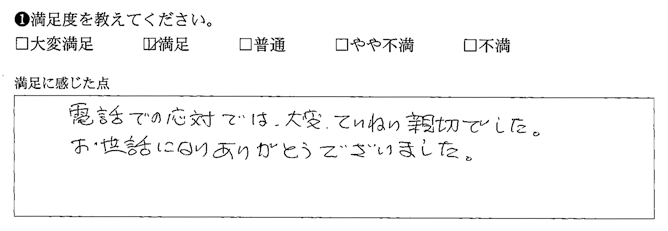 ❶満足度を教えてください。
□大変満足 ☑満足 □普通 □やや不満 □不満
満足に感じた点
電話での応対では、大変、ていねい親切でした。
お世話になりありがとうございました。